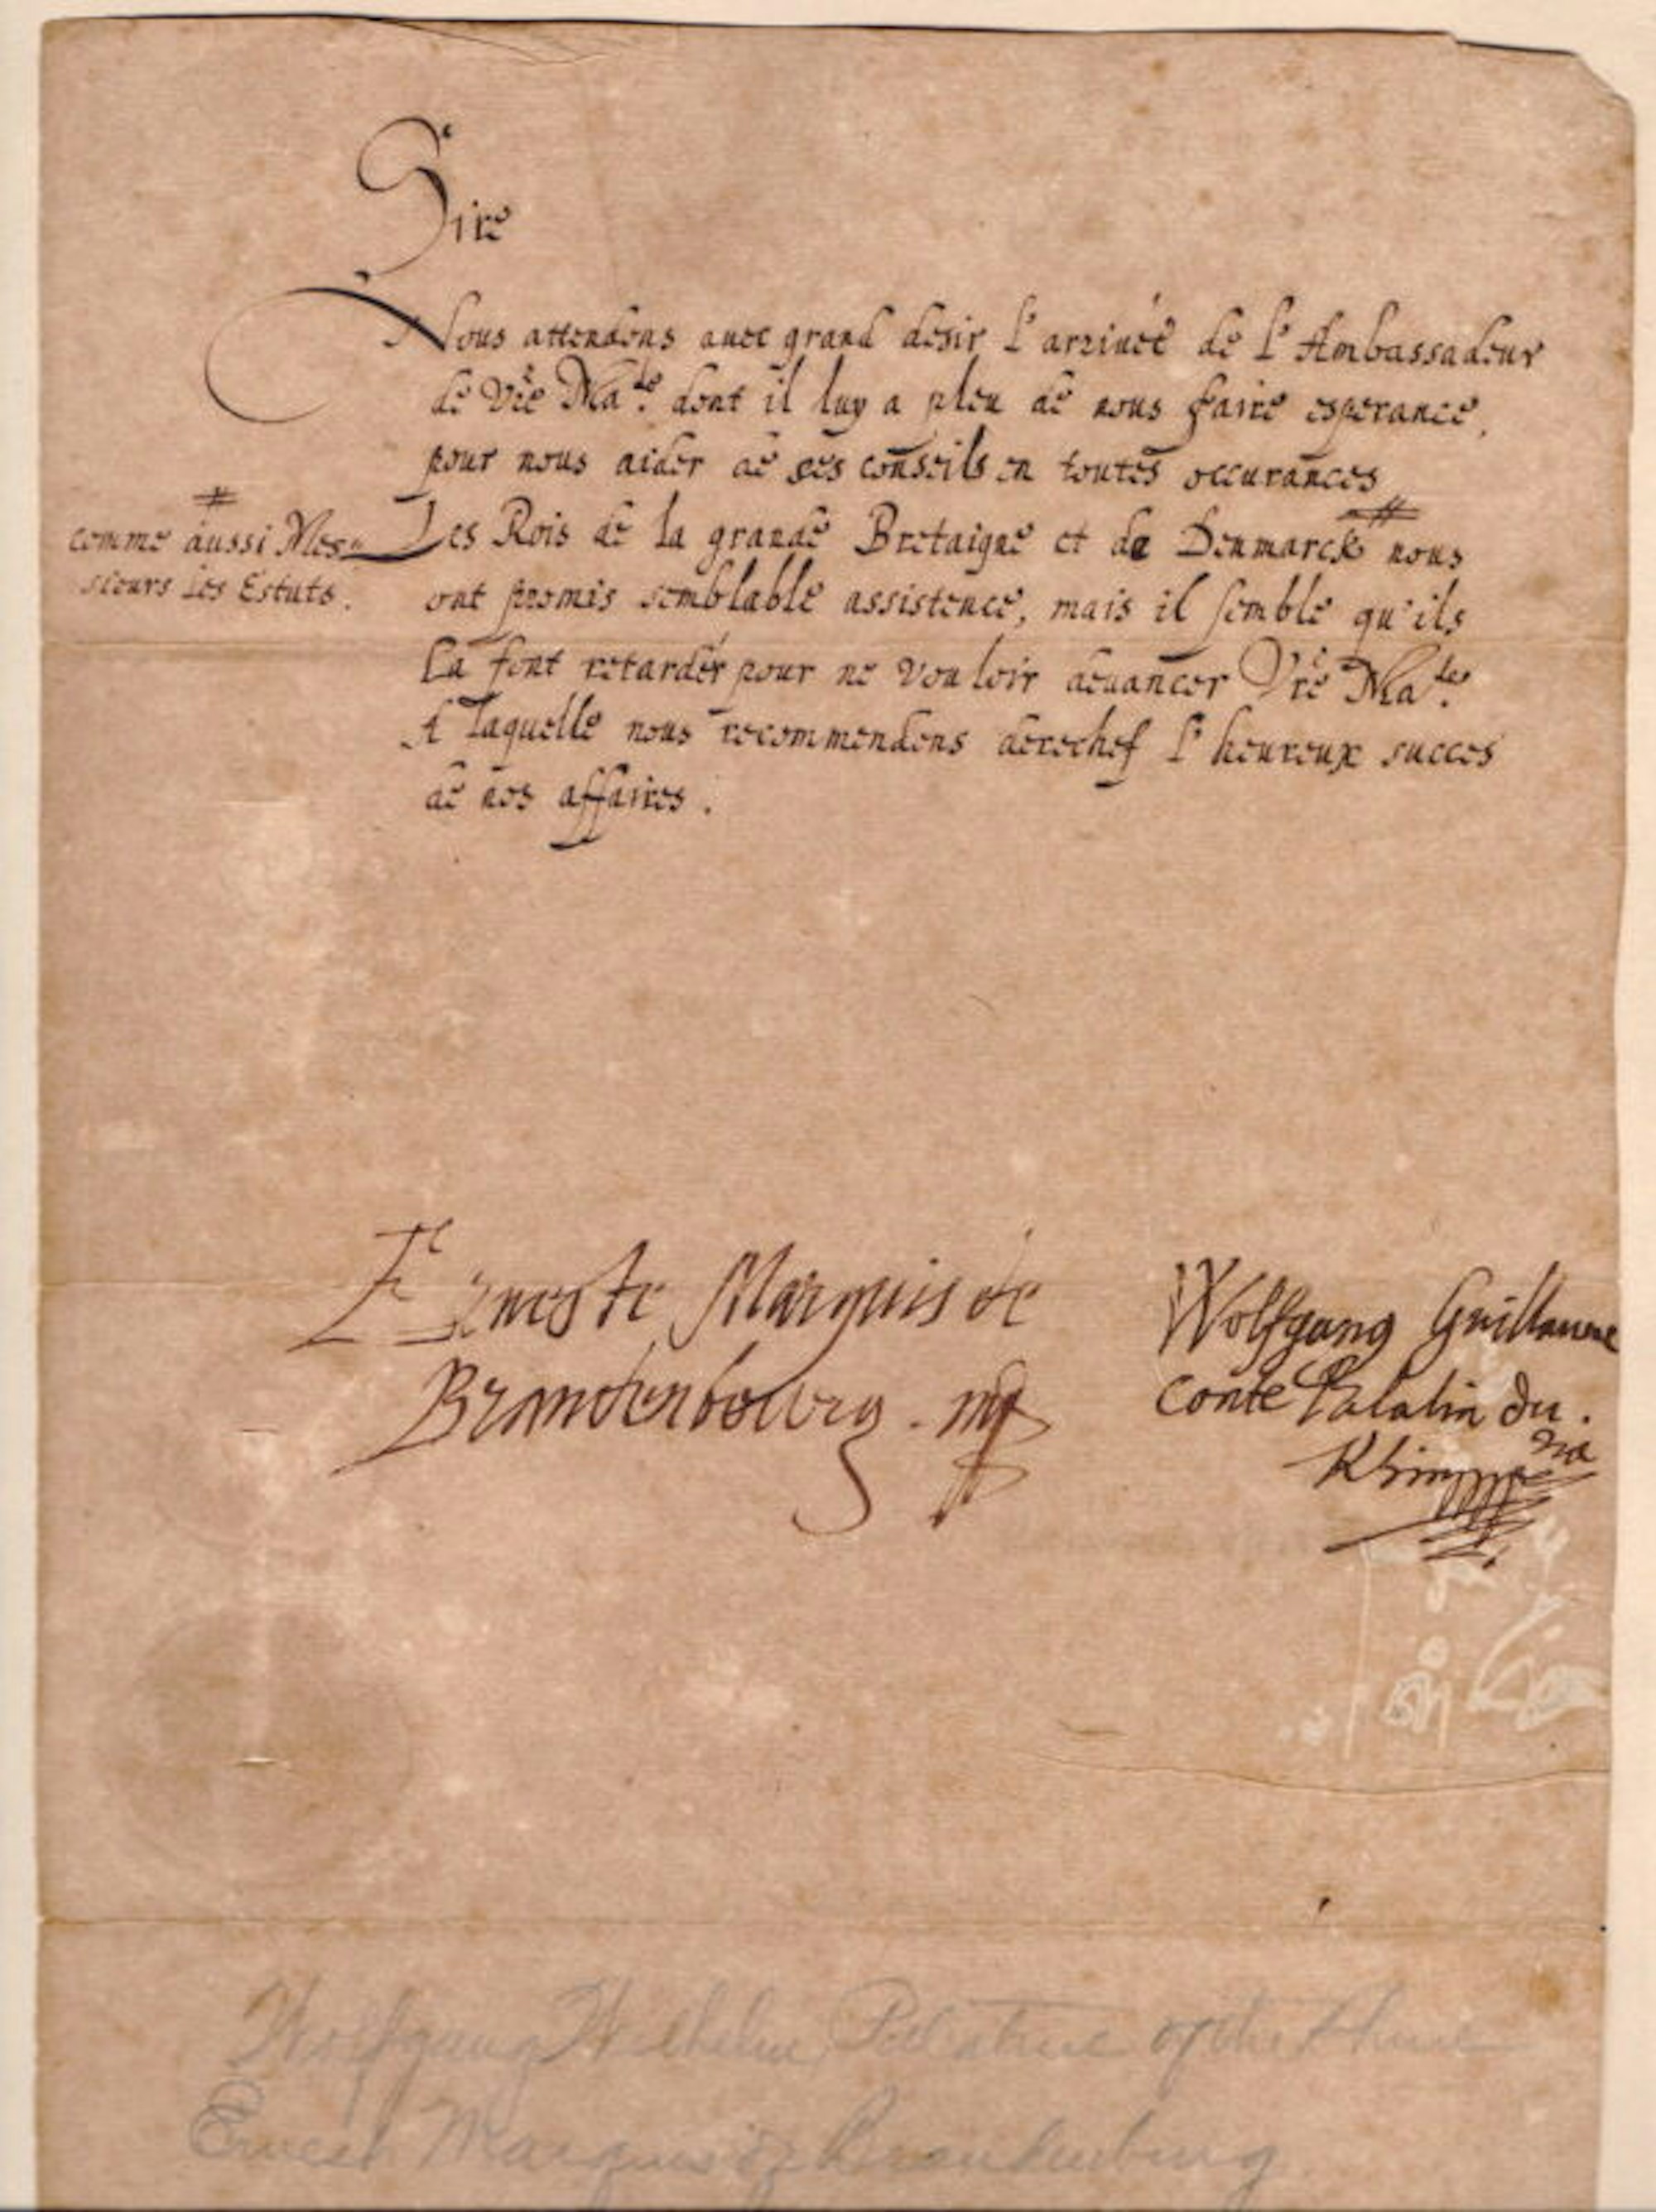 Sire
Nous attendons auec grand desir l'arriuée de l'Ambassadeur
de Vre Ma.te dont il luy a pleu de nous faire esperance,
pour nous aider de ses conseils en toutes occurances
Les Rois de la grande Bretaigne et de Denmarck # nous
#
comme aussi Mes-
sieurs les Estats.
ont promis semblable assistence, mais il semble qu'ils
la font retarder pour ne vouloir deuancer Vre Ma.te
A laquelle nous recommendons derechef l'heureux succes
de nos affaires.
Erneste Marquis de
Brandenbourg. mp
Wolfgang Guillaume
Conte Palatin du
Rhin
Wolfgang Wilhelm, Palatine of the Rhine
Ernest Marquis of Brandenburg